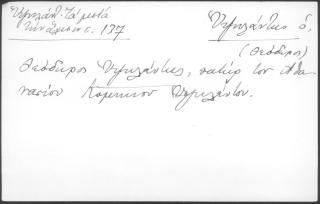 Ὑψηλάντ. Τὰ μετὰ
τὴν ἅλωσιν σ. 137
Ὑψηλάντης ὁ,
(Θεόδωρος)
Θεόδωρος Ὑψηλάντης, πατὴρ τοῦ Ἀθα
νασίου Κομνηνοῦ Ὑψηλάντου.